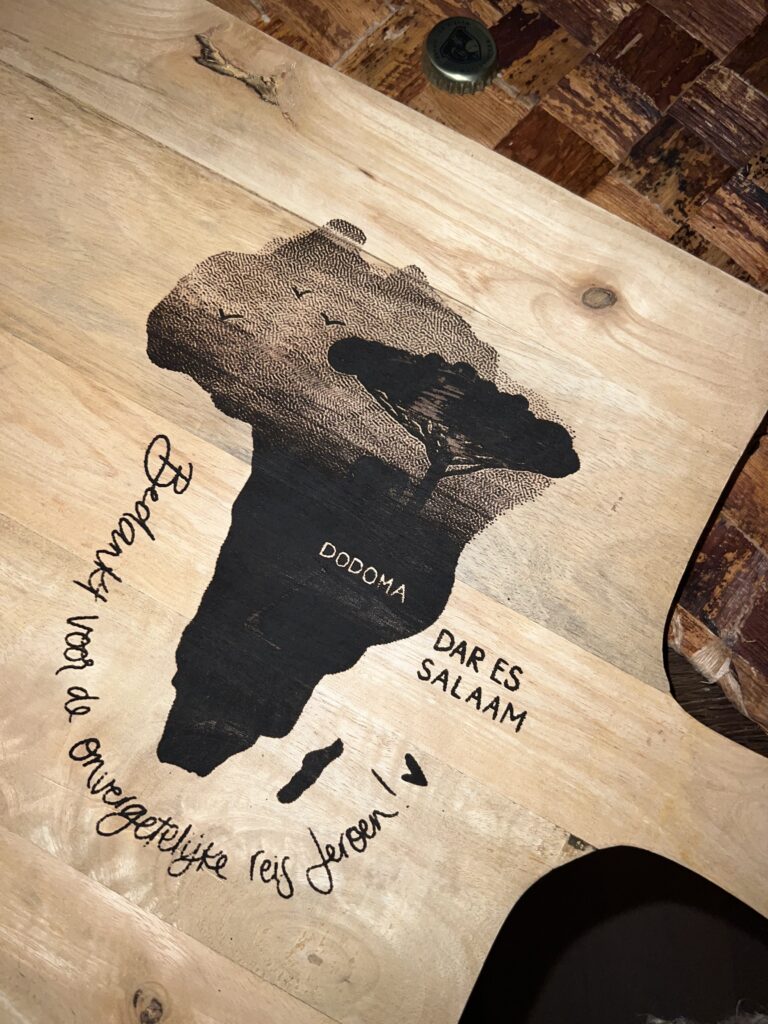 DODOMA
DAR ES
SALAAM
Bedankt voor de onvergetelijke reis Jeroen!